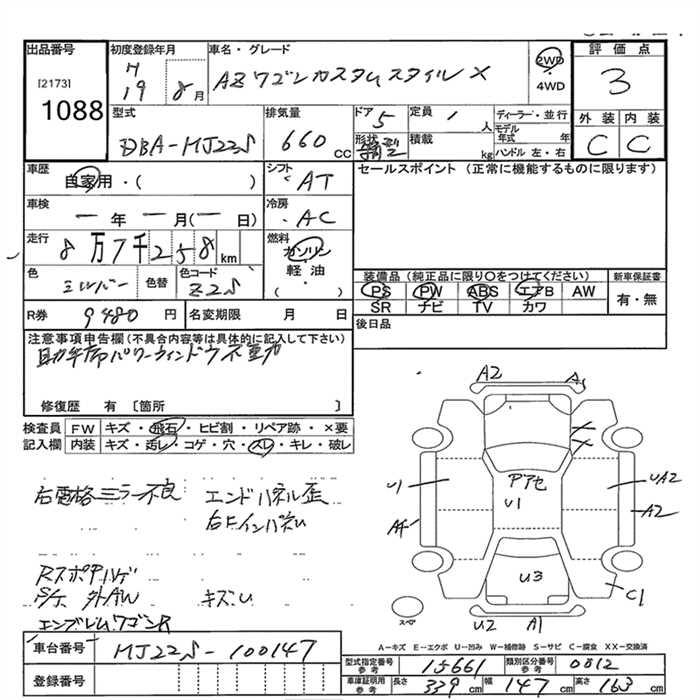 出品番号
[2173]
1088
初度登録年月
H
19 8月
車名・グレード
AZワゴンカスタムスタイルX
2WD
4WD
評価点
3
外装 内装
C C
型式
DBA-MJ22S
排気量
660 cc
ドア
5
定員
人
形状
積載
kg
ディーラー・並行
モデル年式 年
ハンドル 左・右
車歴
自家用・( )
シフト
AT
車検
年 月( 日)
冷房
AC
走行
8万7千258km
燃料
ガソリン
軽油・
( )
色
シルバー
色替
色コード
Z2S
R券
9480円
名変期限 月 日
セールスポイント (正常に機能するものに限ります)
装備品 (純正品に限り○をつけてください)
PS PW ABS エアB AW
SR ナビ TV カワ
新車保証書
有・無
後日品
注意事項申告欄(不具合内容等は具体的に記入して下さい)
助手席パワーウィンドウ不動
修復歴 有 [箇所 ]
検査員 FW キズ・飛石・ヒビ割・リペア跡・×要
記入欄 内装 キズ・汚レ・コゲ・穴・スレ・キレ・破レ
右電格ミラー不良 エンドパネル歪
右Fインパネu
RスポPハゲ
S/K 外AW キズu
エンブレムワゴンR
A2
U1
A4
アアセ
U1
UA2
A2
U3
C1
U2 A1
スペア
A-キズ E-エクボ U-凹み W-補修跡 S-サビ C-腐食 XX-交換済
車台番号 MJ22S-100147
登録番号
型式指定番号 参考 15661 類別区分番号 参考 0012
車庫証明用 参考 長さ 339cm 幅 147cm 高さ 163cm